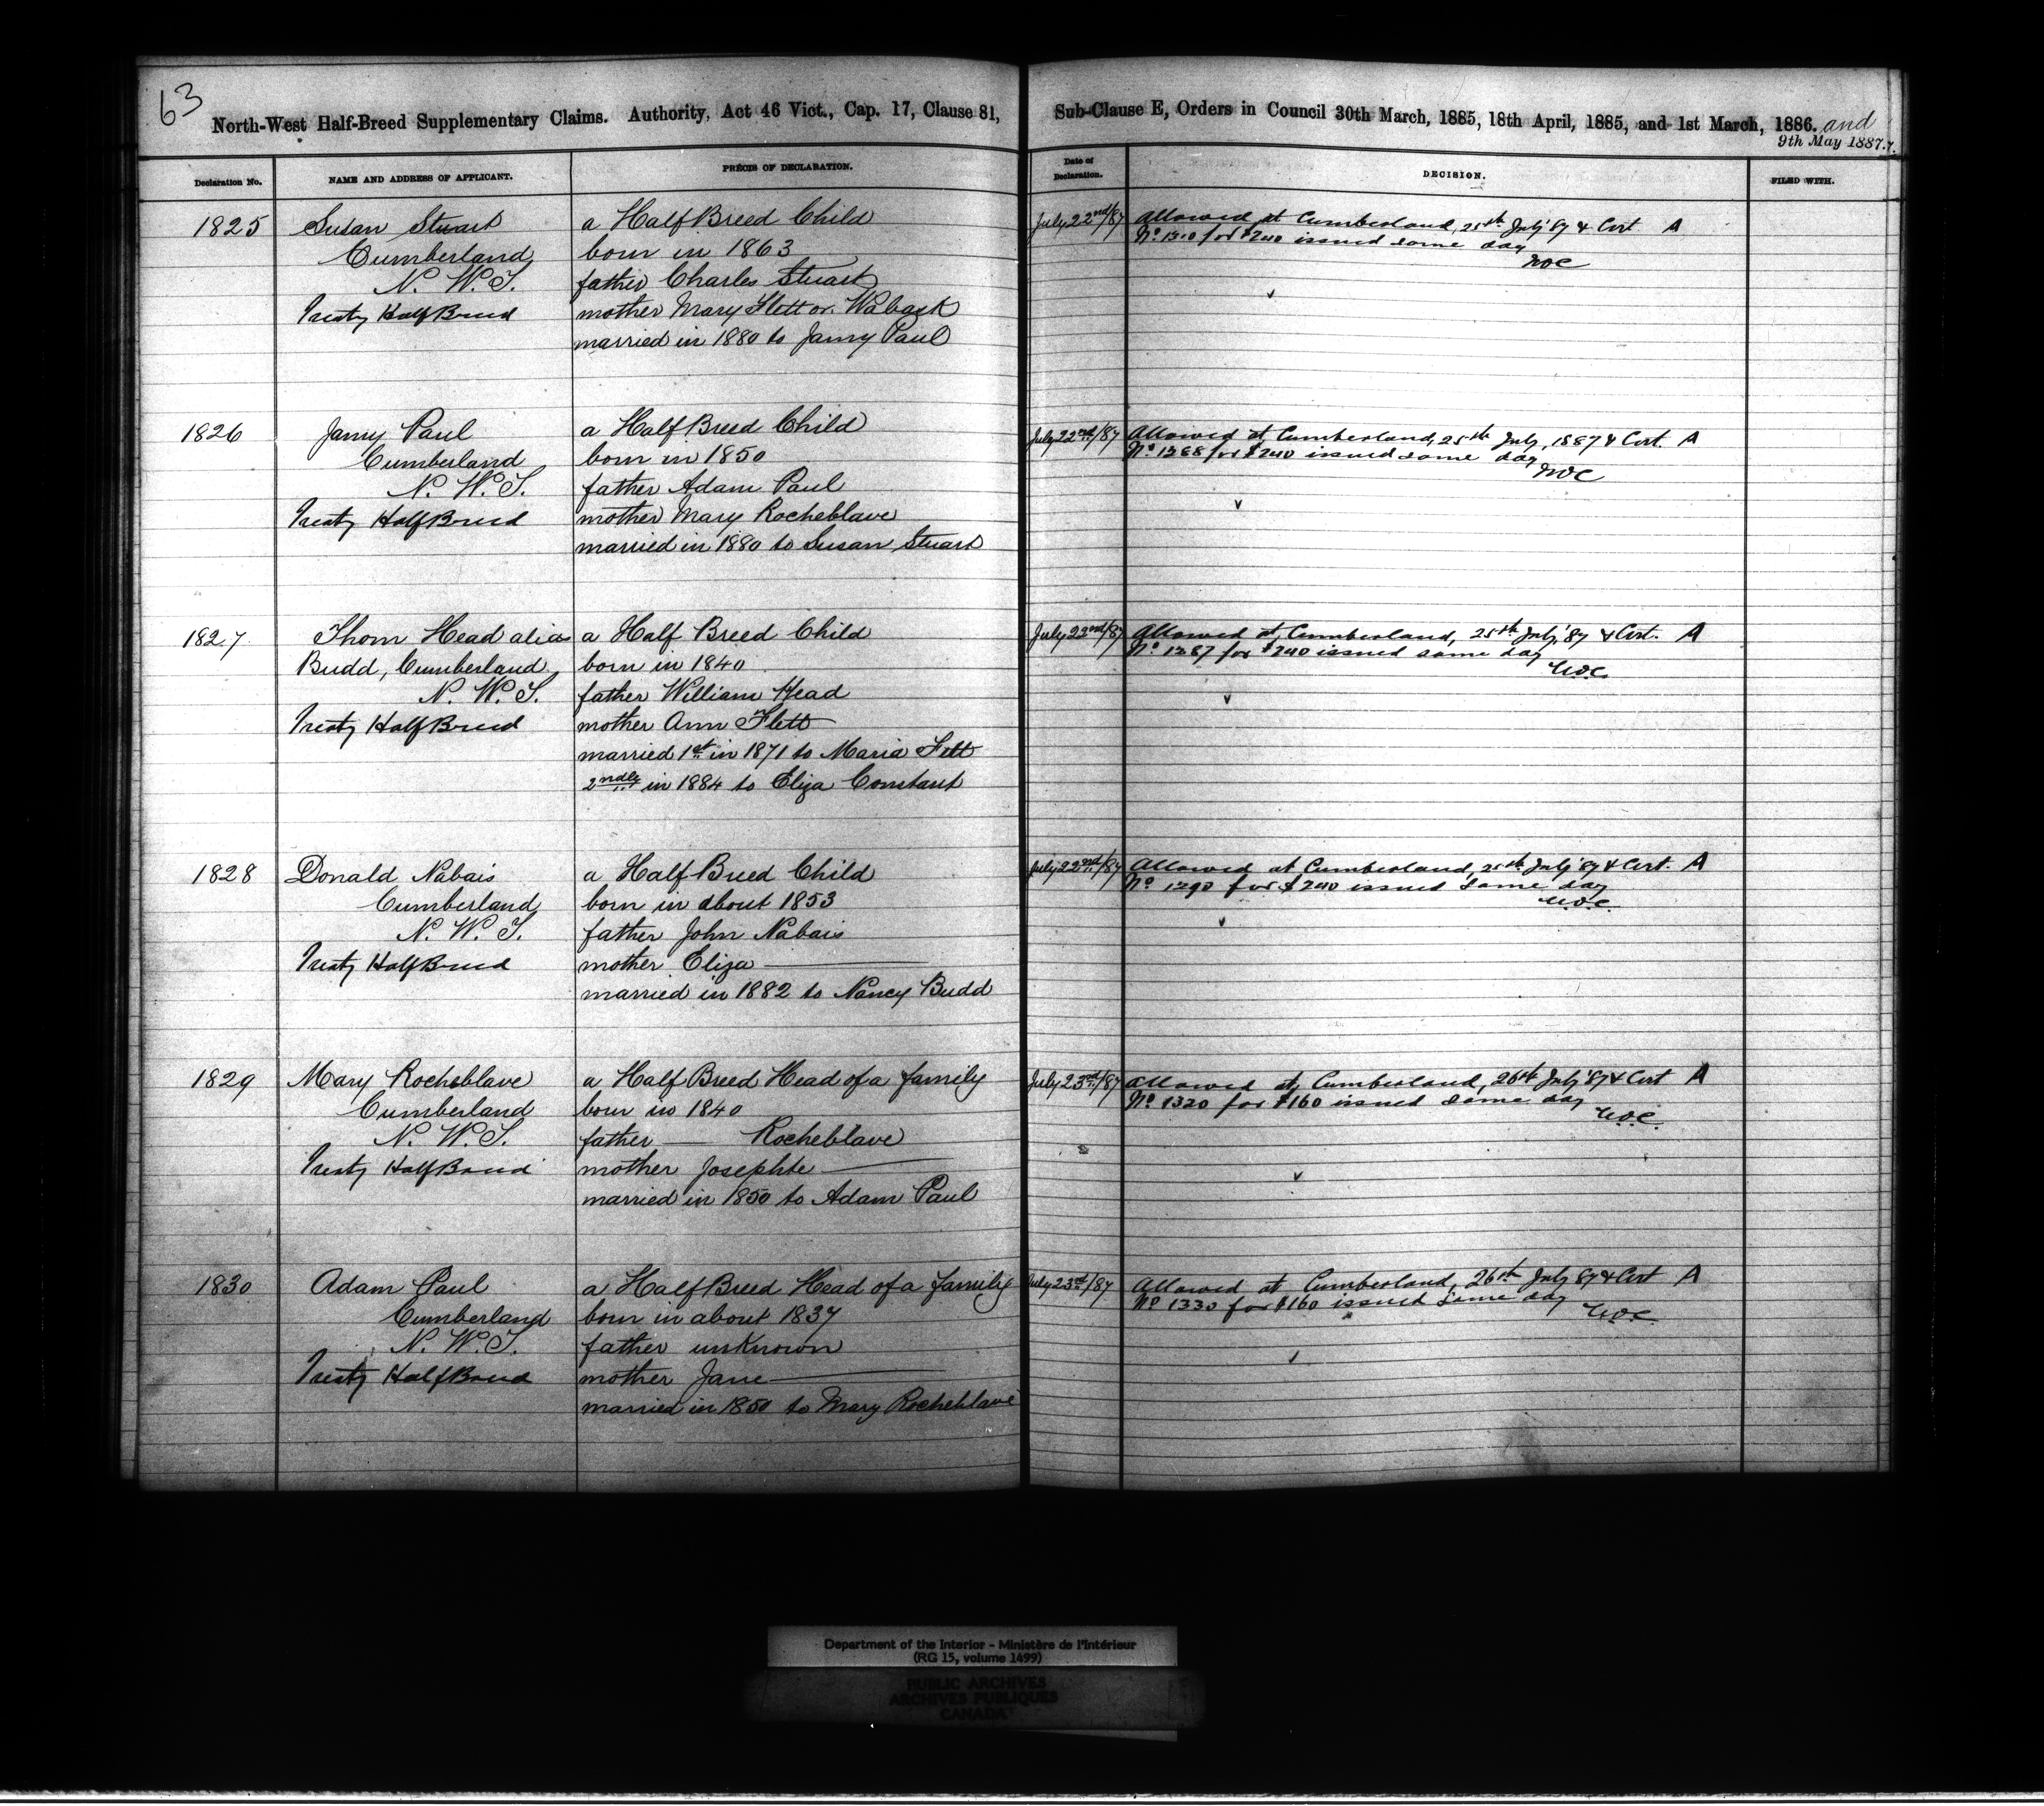 63
North-West Half-Breed Supplementary Claims. Authority, Act 46 Vict., Cap. 17, Clause 81,
Sub-Clause E, Orders in Council 30th March, 1885, 18th April, 1885, and 1st March, 1886. and
9th May 1887.
Declaration No.
NAME AND ADDRESS OF APPLICANT.
PRÉCIS OF DECLARATION.
Date of Declaration.
DECISION.
FILED WITH.
1825
Susan Stuart
Cumberland
N. W. T.
Treaty Half Breed
a Half Breed Child
born in 1863
father Charles Stuart
mother Mary Flett or Waback
married in 1880 to Jamy Paul
July 22nd/87
Allowed at Cumberland, 25th July '87 & Cert. A
No for $240 issued same day
1826
Jamy Paul
Cumberland
N. W. T.
Treaty Half Breed
a Half Breed Child
born in 1850
father Adam Paul
mother Mary Rocheblave
married in 1880 to Susan Stuart
July 22nd/87
Allowed at Cumberland, 25th July, 1887 & Cert. A
No for $240 issued same day
1827
Thom Head alias
Budd, Cumberland
N. W. T.
Treaty Half Breed
a Half Breed Child
born in 1840
father William Head
mother Ann Flett
married 1st in 1871 to Maria Fett
2ndly in 1884 to Eliza Constant
July 22nd/87
Allowed at Cumberland, 25th July '87 & Cert. A
No 1287 for $240 issued same day
1828
Donald Nabais
Cumberland
N. W. T.
Treaty Half Breed
a Half Breed Child
born in about 1853
father John Nabais
mother Eliza
married in 1882 to Nancy Budd
July 22nd/87
Allowed at Cumberland, 25th July '87 & Cert. A
No 1290 for $240 issued same day
1829
Mary Rocheblave
Cumberland
N. W. T.
Treaty Half Breed
a Half Breed Head of a family
born in 1840
father — Rocheblave
mother Josephte
married in 1850 to Adam Paul
July 23rd/87
Allowed at Cumberland, 26th July '87 & Cert A
No 1320 for $160 issued same day
1830
Adam Paul
Cumberland
N. W. T.
Treaty Half Breed
a Half Breed Head of a family
born in about 1837
father unknown
mother Jane
married in 1850 to Mary Rocheblave
July 23rd/87
Allowed at Cumberland, 26th July 87 & Cert A
No 1330 for $160 issued same day
Department of the Interior - Ministère de l'Intérieur
(RG 15, volume 1499)
PUBLIC ARCHIVES
ARCHIVES PUBLIQUES
CANADA